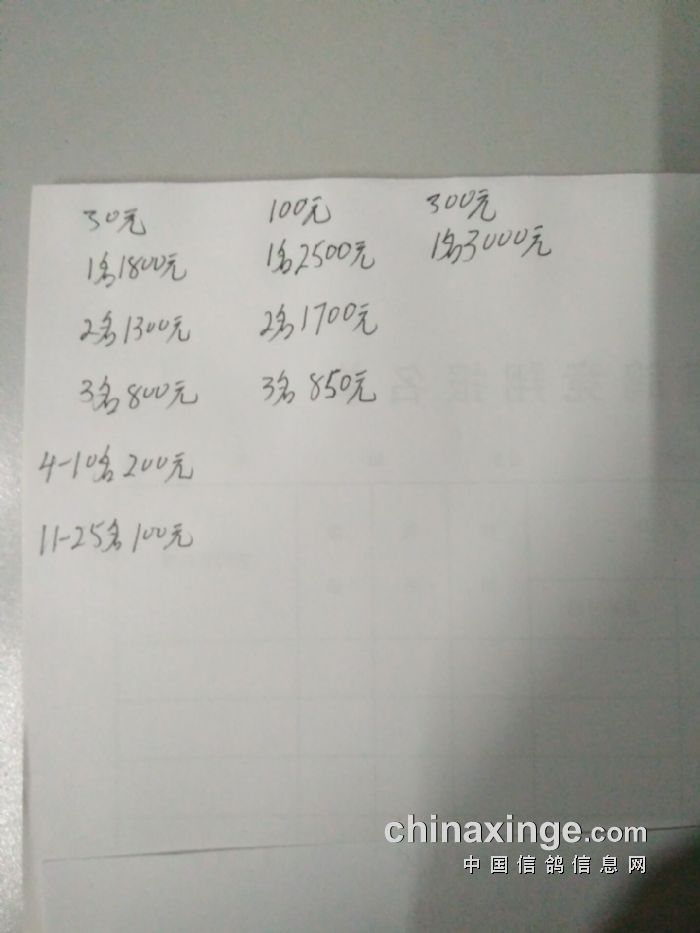 30元 100元 300元
1名1800元 1名2500元 1名3000元
2名1300元 2名1700元
3名800元 3名850元
4-10名200元
11-25名100元
竞翔报名
chinaxinge.com
中国信鸽信息网